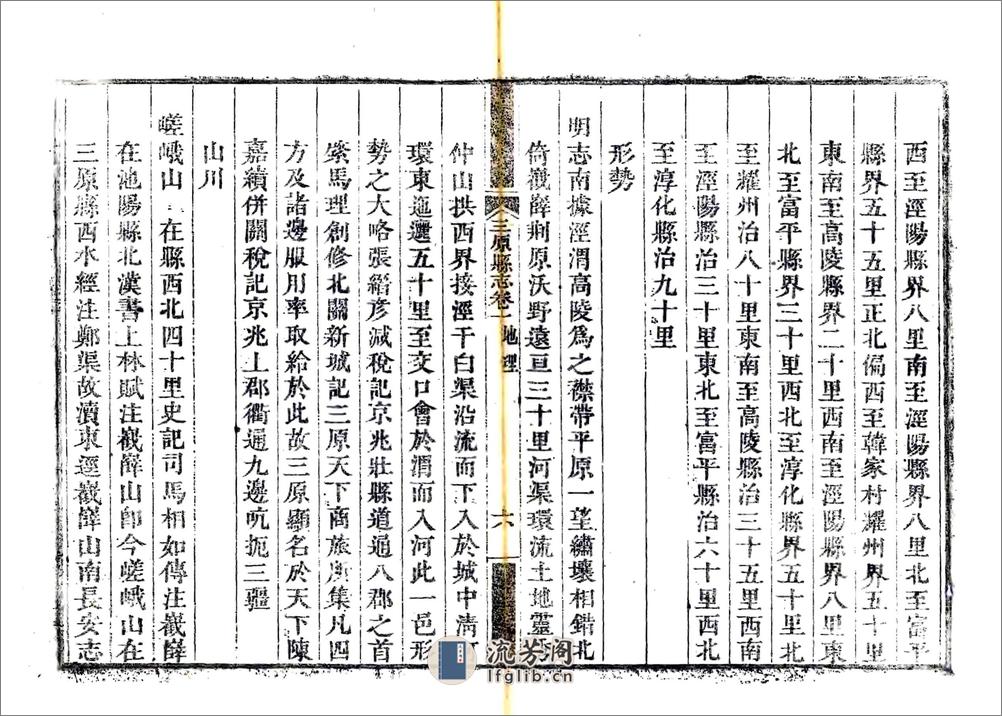 西至涇陽縣界八里南至涇陽縣界八里北至富平
縣界五十五里正北偏西至韓家村耀州界五十里
東南至高陵縣界二十里西南至涇陽縣界八里東
北至富平縣界三十里西北至淳化縣界五十里北
至耀州治八十里東南至高陵縣治三十五里西南
至涇陽縣治三十里東北至富平縣治六十里西北
至淳化縣治九十里
形勢
明志南據涇渭高陵爲之襟帶平原一望繡壤相錯北
倚巀嶭荆原沃野遠亘三十里河渠環流土地靈
三原縣志卷一 地理 六
仲山拱西界接涇干白渠沿流而下入於城中淸
環東迤邐五十里至交口會於渭而入河此一邑形
勢之大略張縉彦減稅記京兆壯縣道通八郡之首
馬理創修北關新城記三原天下商旅所集凡四
方及諸邊服用率取給於此故三原顯名於天下陳
嘉績併關稅記京兆上郡衢通九邊吭扼三疆
山川
嵯峨山 在縣西北四十里史記司馬相如傳注巀嶭
在池陽縣北漢書上林賦注巀嶭山卽今嵯峨山在
三原縣西水經注鄭渠故瀆東逕巀嶭山南長安志
流芳阁
lfglib.cn